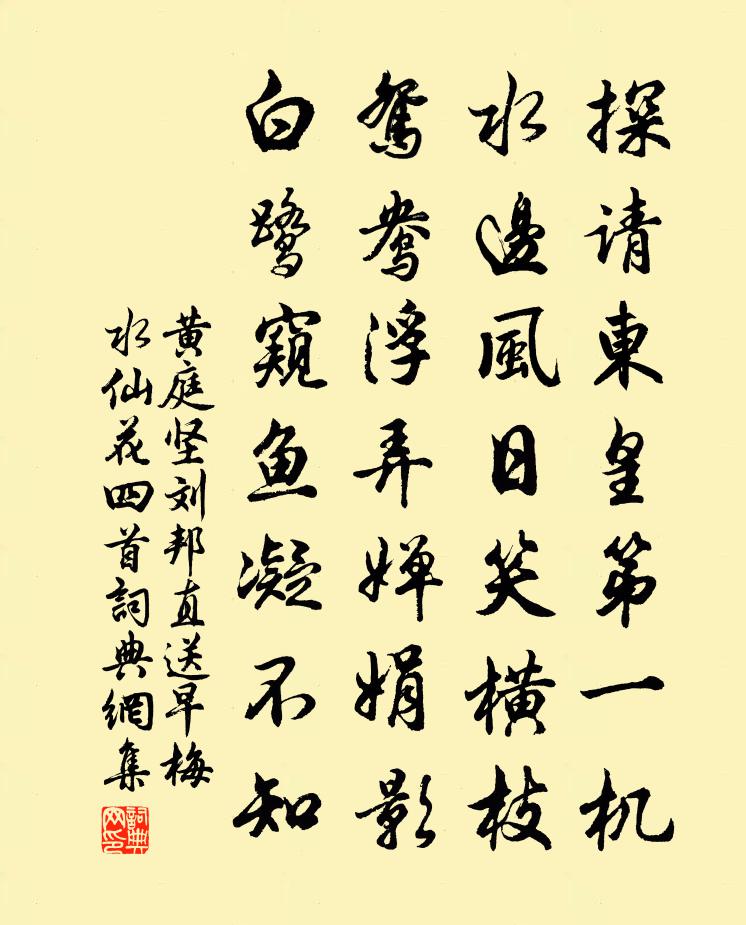 探请東皇第一机
水邊風日笑橫枝
鴛鴦浮弄嬋娟影
白鷺窺魚凝不知
黄庭坚刘邦直送早梅
水仙花四首詞典網集
詞典网印